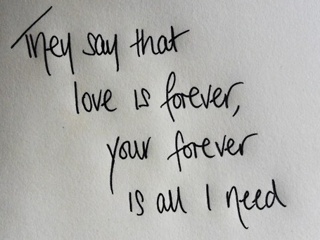 They say that
love is forever,
your forever
is all I need